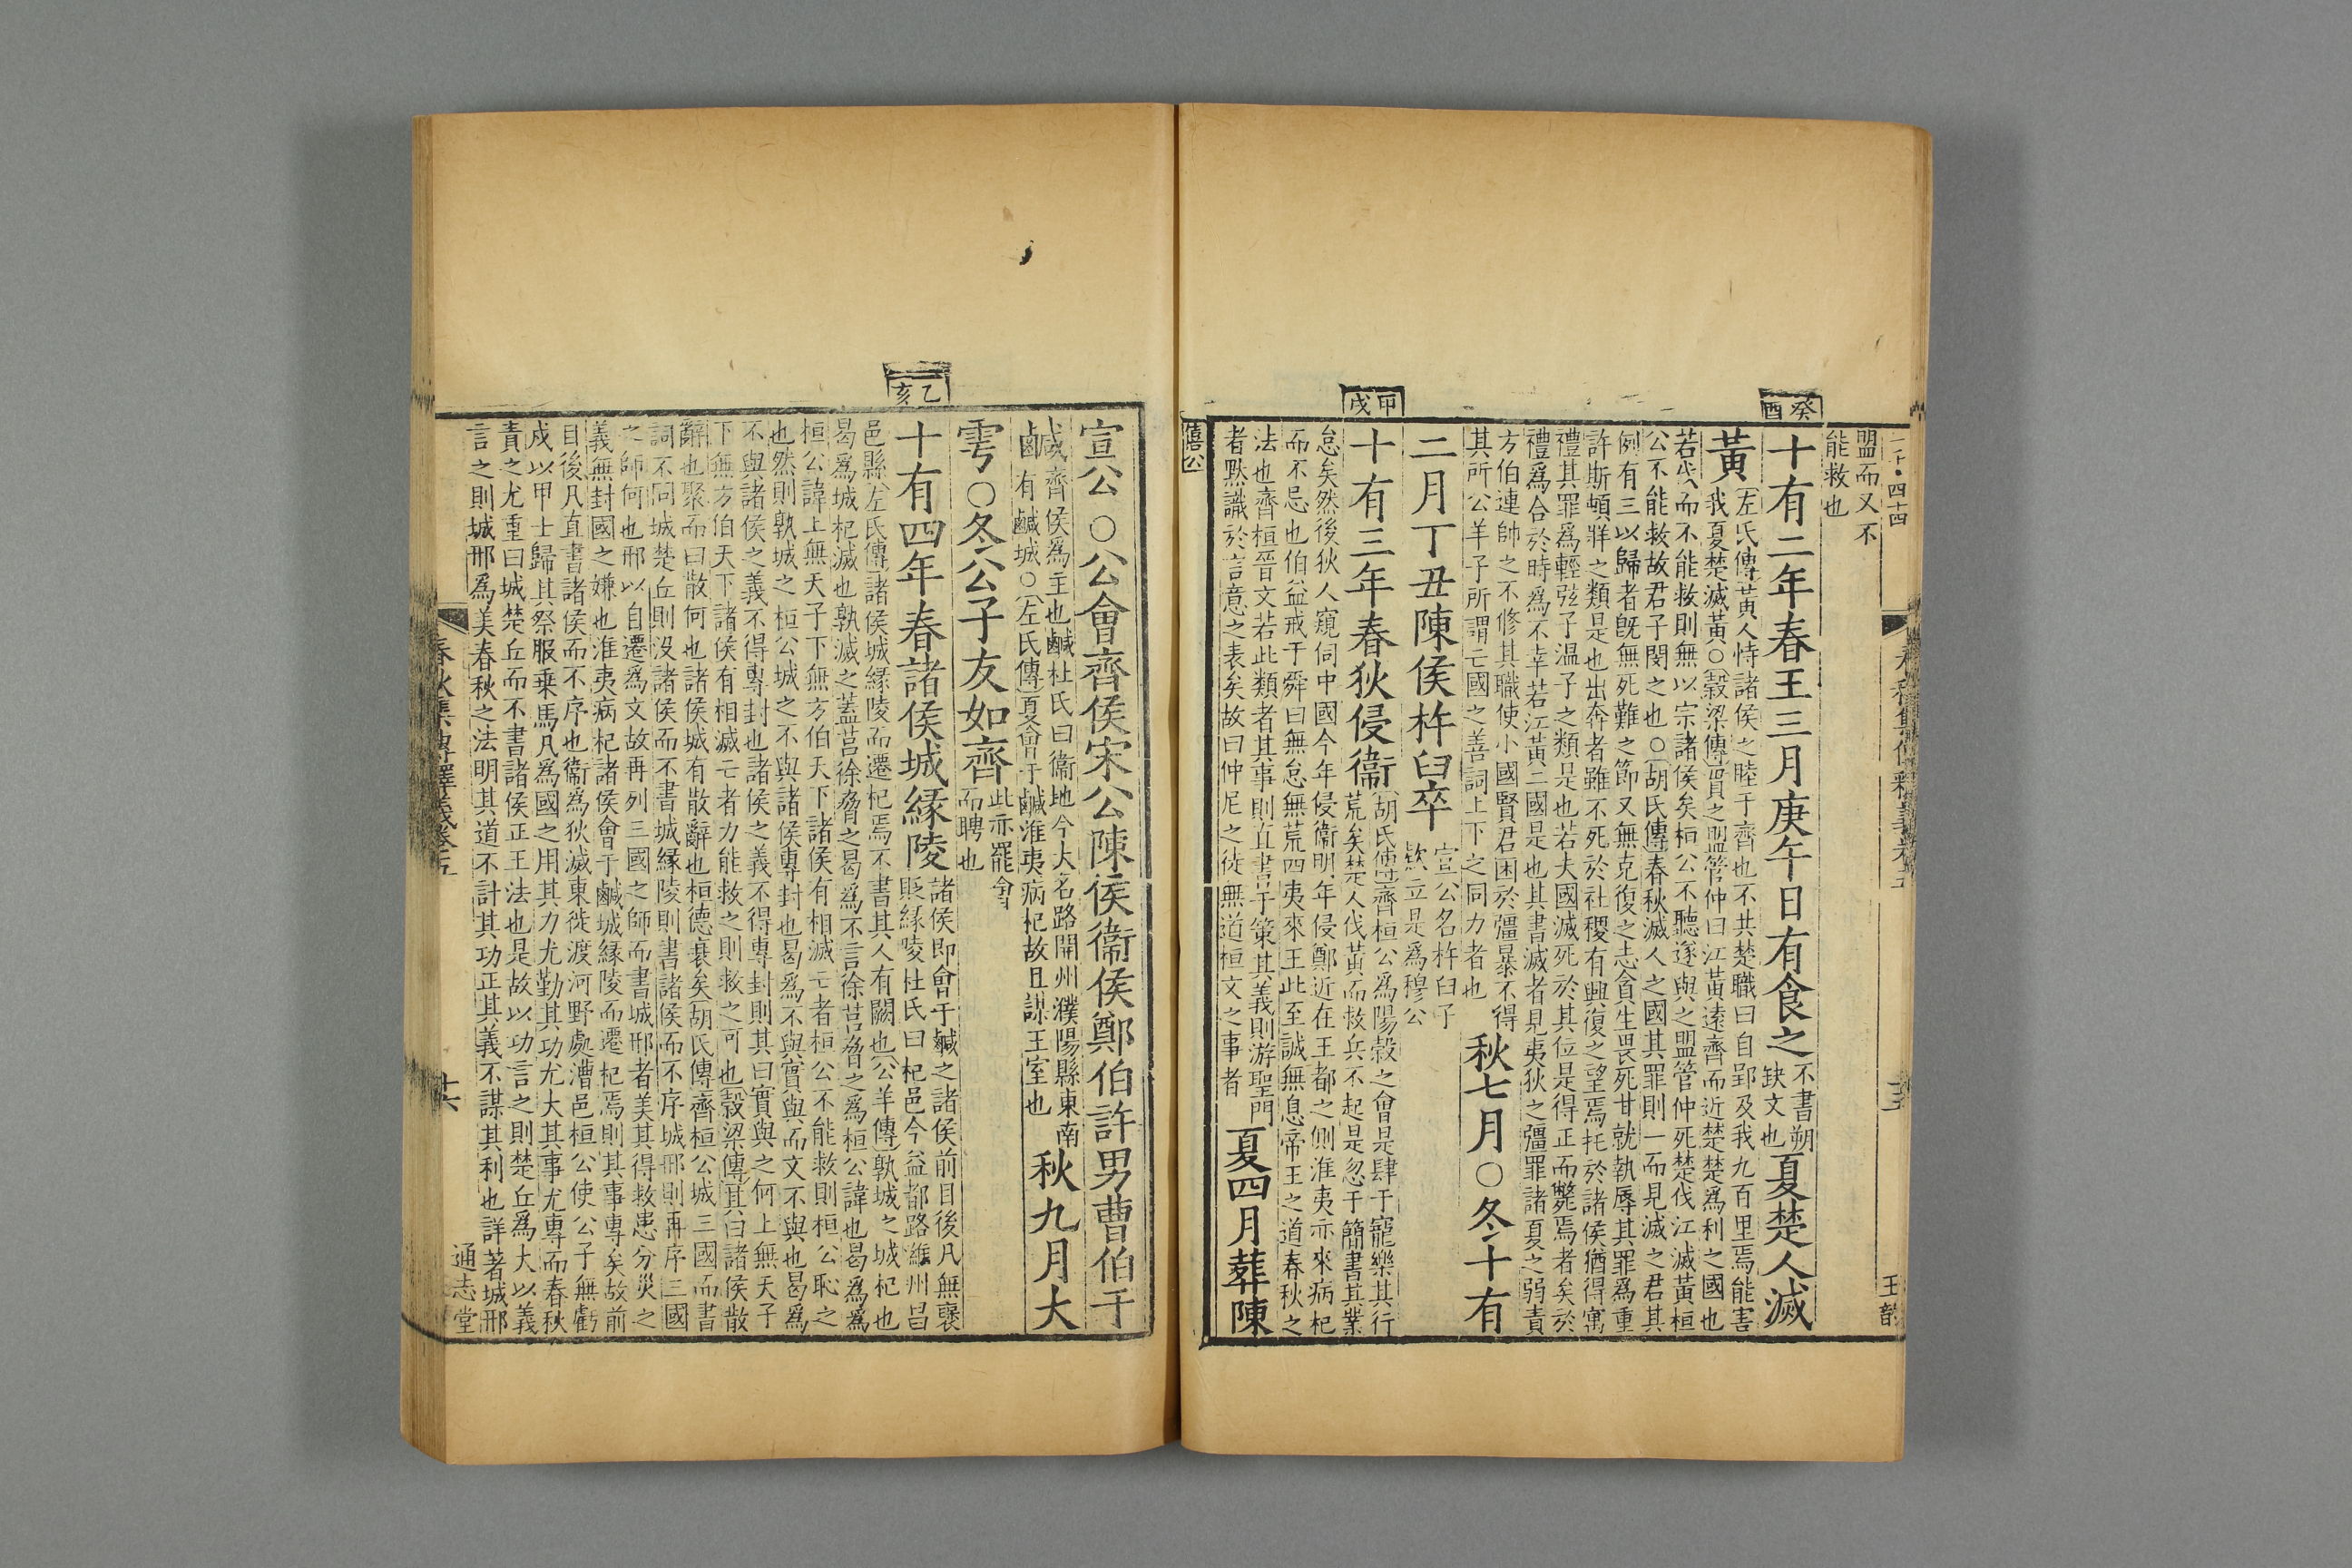 盟而又不
能救也
癸酉
十有二年春王三月庚午日有食之
不書朔
缺文也
夏楚人滅
黃
左氏傳黃人恃諸侯之睦于齊也不共楚職曰自郢及我九百里焉能害
我夏楚滅黃○穀梁傳貫之盟管仲曰江黃遠齊而近楚楚爲利之國也
若伐而不能救則無以宗諸侯矣桓公不聽遂與之盟管仲死楚伐江滅黃桓
公不能救故君子閔之也○胡氏傳春秋滅人之國其罪則一而見滅之君其
例有三以歸者旣無死難之節又無克復之志貪生畏死甘就執辱其罪爲重
許斯頓牂之類是也出奔者雖不死於社稷有興復之望焉托於諸侯猶得寓
禮其罪爲輕弦子溫子之類是也若夫國滅死於其位是得正而斃焉者矣於
禮爲合於時爲不幸若江黃二國是也其書滅者見夷狄之彊罪諸夏之弱責
方伯連帥之不修其職使小國賢君困於彊暴不得
其所公羊子所謂亡國之善詞上下之同力者也
秋七月○冬十有
二月丁丑陳侯杵臼卒
宣公名杵臼子
欵立是爲穆公
甲戌
十有三年春狄侵衞
胡氏傳齊桓公爲陽穀之會是肆于寵樂其行
荒矣楚人伐黃而救兵不起是忽于簡書其業
怠矣然後狄人窺伺中國今年侵衞明年侵鄭近在王都之側淮夷亦來病杞
而不忌也伯益戒于舜曰無怠無荒四夷來王此至誠無息帝王之道春秋之
法也齊桓晉文若此類者其事則直書于策其義則游聖門
者默識於言意之表矣故曰仲尼之徒無道桓文之事者
夏四月葬陳
僖公
宣公○公會齊侯宋公陳侯衞侯鄭伯許男曹伯于
鹹
齊侯爲主也鹹杜氏曰衞地今大名路開州濮陽縣東南
有鹹城○左氏傳夏會于鹹淮夷病杞故且謀王室也
秋九月大
雩○冬公子友如齊
此亦罷會
而聘也
乙亥
十有四年春諸侯城緣陵
諸侯即會于鹹之諸侯前目後凡無襃
貶緣陵杜氏曰杞邑今益都路濰州昌
邑縣左氏傳諸侯城緣陵而遷杞焉不書其人有闕也公羊傳孰城之城杞也
曷爲城杞滅也孰滅之蓋莒徐脅之曷爲不言徐莒脅之爲桓公諱也曷爲爲
桓公諱上無天子下無方伯天下諸侯有相滅亡者桓公不能救則桓公恥之
也然則孰城之桓公城之不與諸侯專封也曷爲不與實與而文不與也曷爲
不與諸侯之義不得專封也諸侯之義不得專封則其曰實與之何上無天子
下無方伯天下諸侯有相滅亡者力能救之則救之可也穀梁傳其曰諸侯散
辭也聚而曰散何也諸侯城有散辭也桓德衰矣胡氏傳齊桓公城三國而書
詞不同城楚丘則没諸侯而不書城緣陵則書諸侯而不序城邢則再序三國
之師何也邢以自遷爲文故再列三國之師而書城邢者美其得救患分災之
義無封國之嫌也淮夷病杞諸侯會于鹹城緣陵而遷杞焉則其事專矣故前
目後凡直書諸侯而不序也衞爲狄滅東徙渡河野處漕邑桓公使公子無虧
戍以甲士歸其祭服乘馬凡爲國之用其力尤勤其功尤大其事尤專而春秋
責之尤重曰城楚丘而不書諸侯正王法也是故以功言之則楚丘爲大以義
言之則城邢爲美春秋之法明其道不計其功正其義不謀其利也詳著城邢
春秋集傳釋義卷五
十六
通志堂